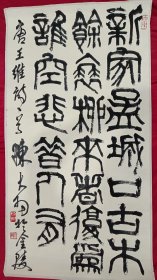 新家孟城口古木
餘衰柳來者復為
誰空悲昔人有
唐王維詩一首 陳大羽 金陵